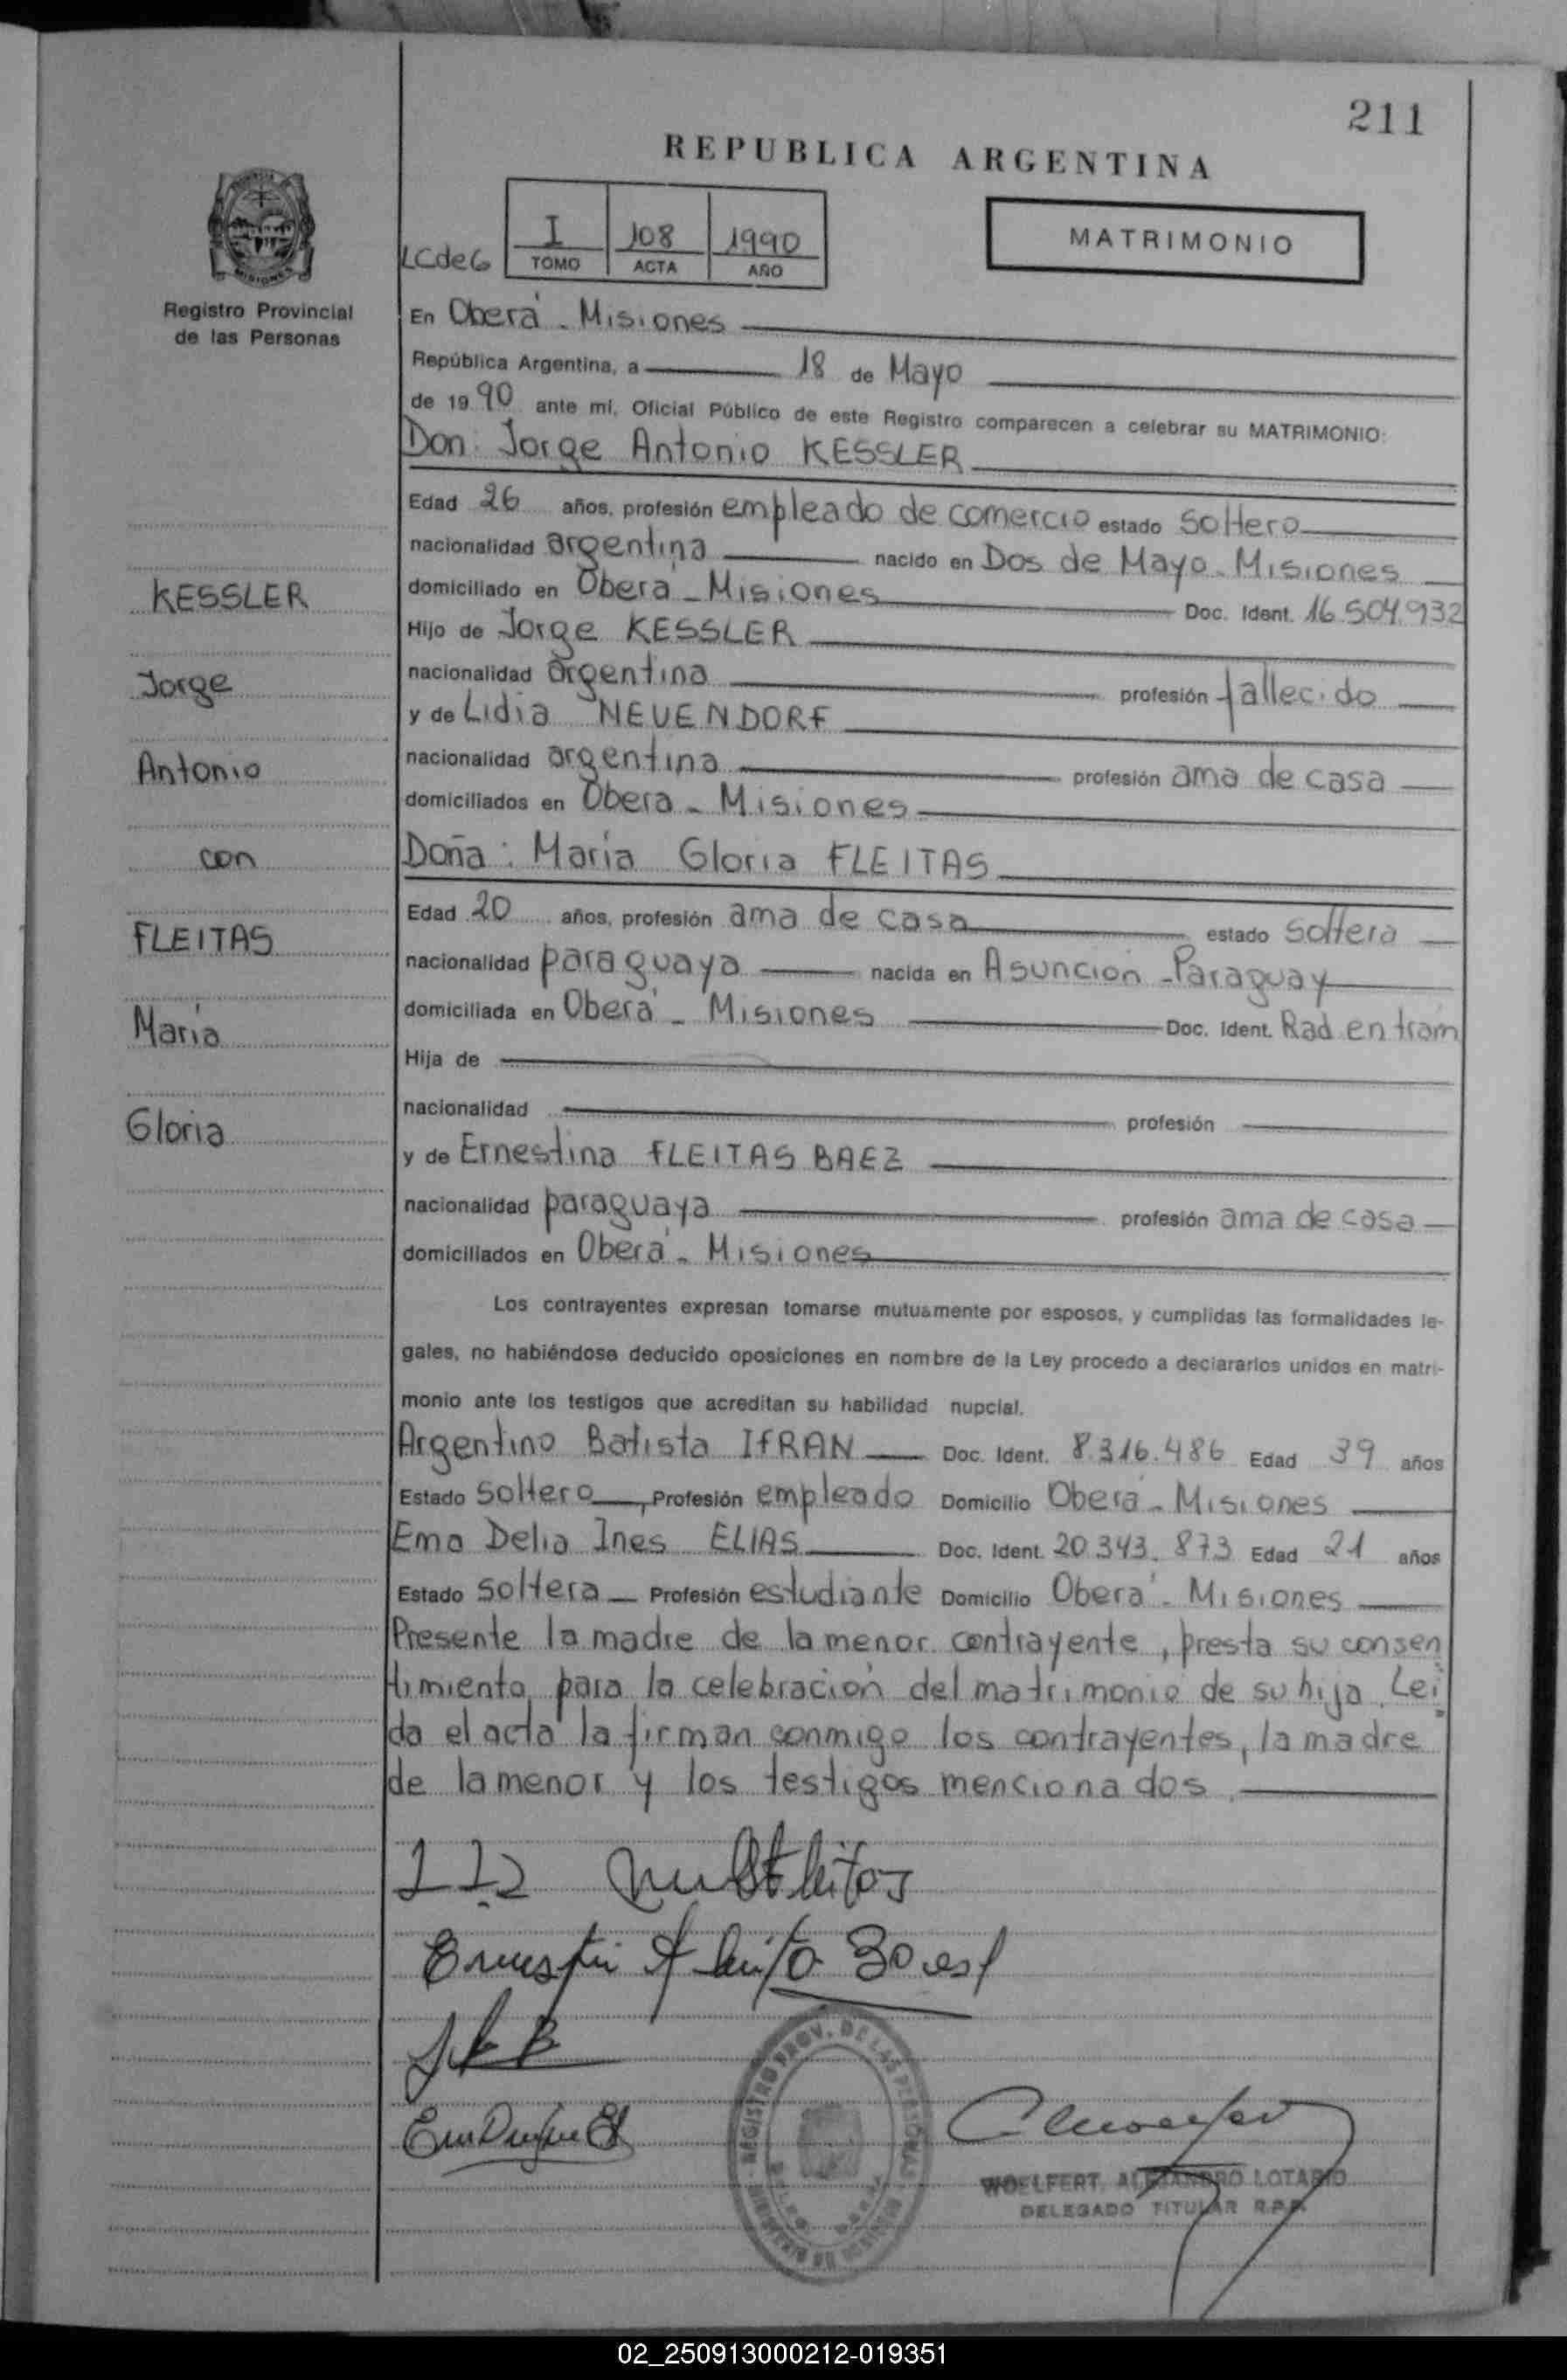 211
REPUBLICA ARGENTINA
LCde6
I 108 1990
TOMO ACTA AÑO
MATRIMONIO
Registro Provincial
de las Personas
En Oberá - Misiones
República Argentina, a 18 de Mayo
de 1990 ante mi, Oficial Público de este Registro comparecen a celebrar su MATRIMONIO:
Don: Jorge Antonio KESSLER
Edad 26 años, profesión empleado de comercio estado soltero
nacionalidad argentina nacido en Dos de Mayo - Misiones
domiciliado en Oberá - Misiones Doc. Ident. 16.504.932
Hijo de Jorge KESSLER
nacionalidad argentina profesión fallecido
y de Lidia NEUENDORF
nacionalidad argentina profesión ama de casa
domiciliados en Oberá - Misiones
Doña: María Gloria FLEITAS
Edad 20 años, profesión ama de casa estado soltera
nacionalidad paraguaya nacida en Asunción - Paraguay
domiciliada en Oberá - Misiones Doc. Ident. Rad en tram
Hija de
nacionalidad profesión
y de Ernestina FLEITAS BAEZ
nacionalidad paraguaya profesión ama de casa
domiciliados en Oberá - Misiones
KESSLER
Jorge
Antonio
con
FLEITAS
María
Gloria
Los contrayentes expresan tomarse mutuamente por esposos, y cumplidas las formalidades le-
gales, no habiéndose deducido oposiciones en nombre de la Ley procedo a declararlos unidos en matri-
monio ante los testigos que acreditan su habilidad nupcial.
Argentino Batista IFRAN Doc. Ident. 8.316.486 Edad 39 años
Estado soltero, Profesión empleado Domicilio Oberá - Misiones
Ema Delia Ines ELIAS Doc. Ident. 20.343.873 Edad 21 años
Estado soltera Profesión estudiante Domicilio Oberá - Misiones
Presente la madre de la menor contrayente, presta su consen
timiento para la celebración del matrimonio de su hija. Leí
da el acta la firman conmigo los contrayentes, la madre
de la menor y los testigos mencionados.
REGISTRO PROV. DE LAS PERSONAS
WOELFERT, ALEJANDRO LOTARIO
DELEGADO TITULAR R.P.P.
02_250913000212-019351